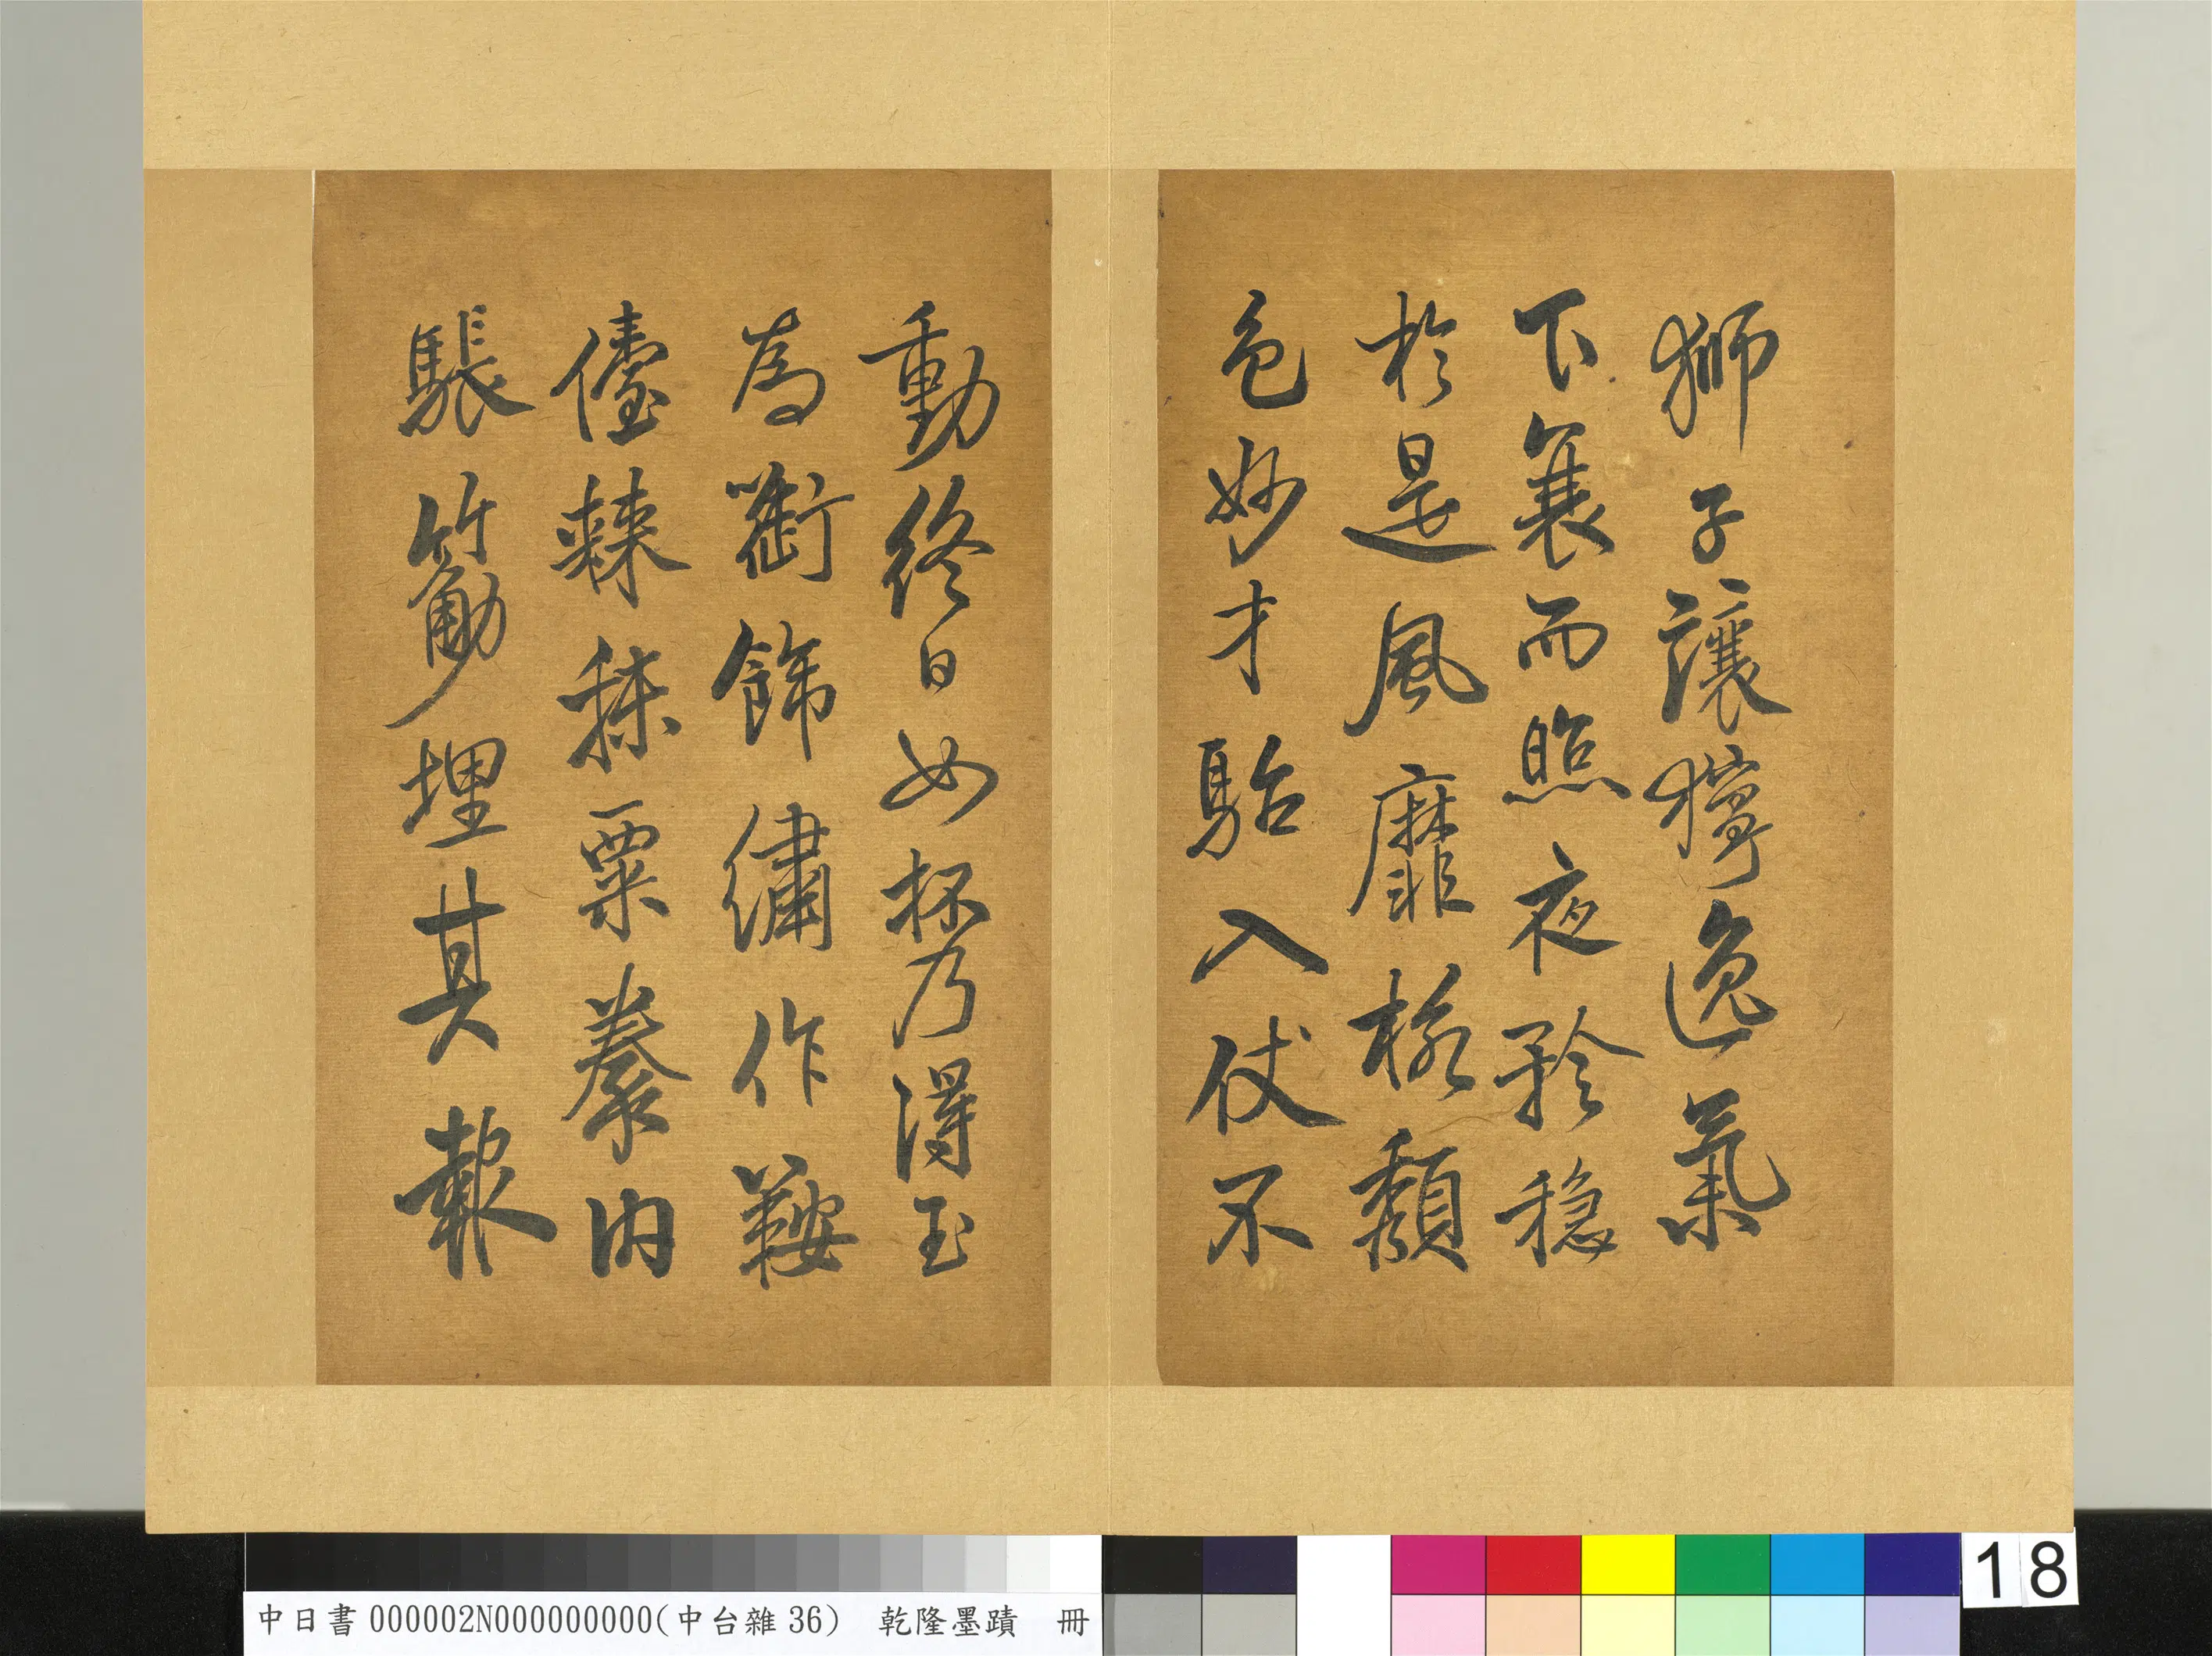 獅子讓獰逸氣
下衰而照夜矜穩
於是風靡格頹
色妙才駘入仗不
動終日如抔乃得玉
為銜飾繡作鞍
儓棘秣粟豢肉
筋埋其報
中日書000002N000000000(中台雜36) 乾隆墨蹟 冊
18